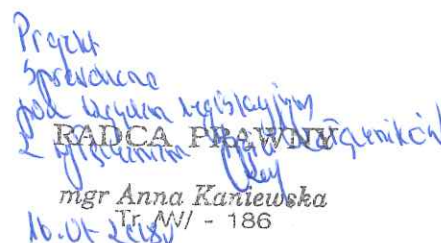 Projekt
sprawdzono
pod względem legislacyjnym
z wyłączeniem załączników
RADCA PRAWNY
mgr Anna Kaniewska
Tr /W/ - 186